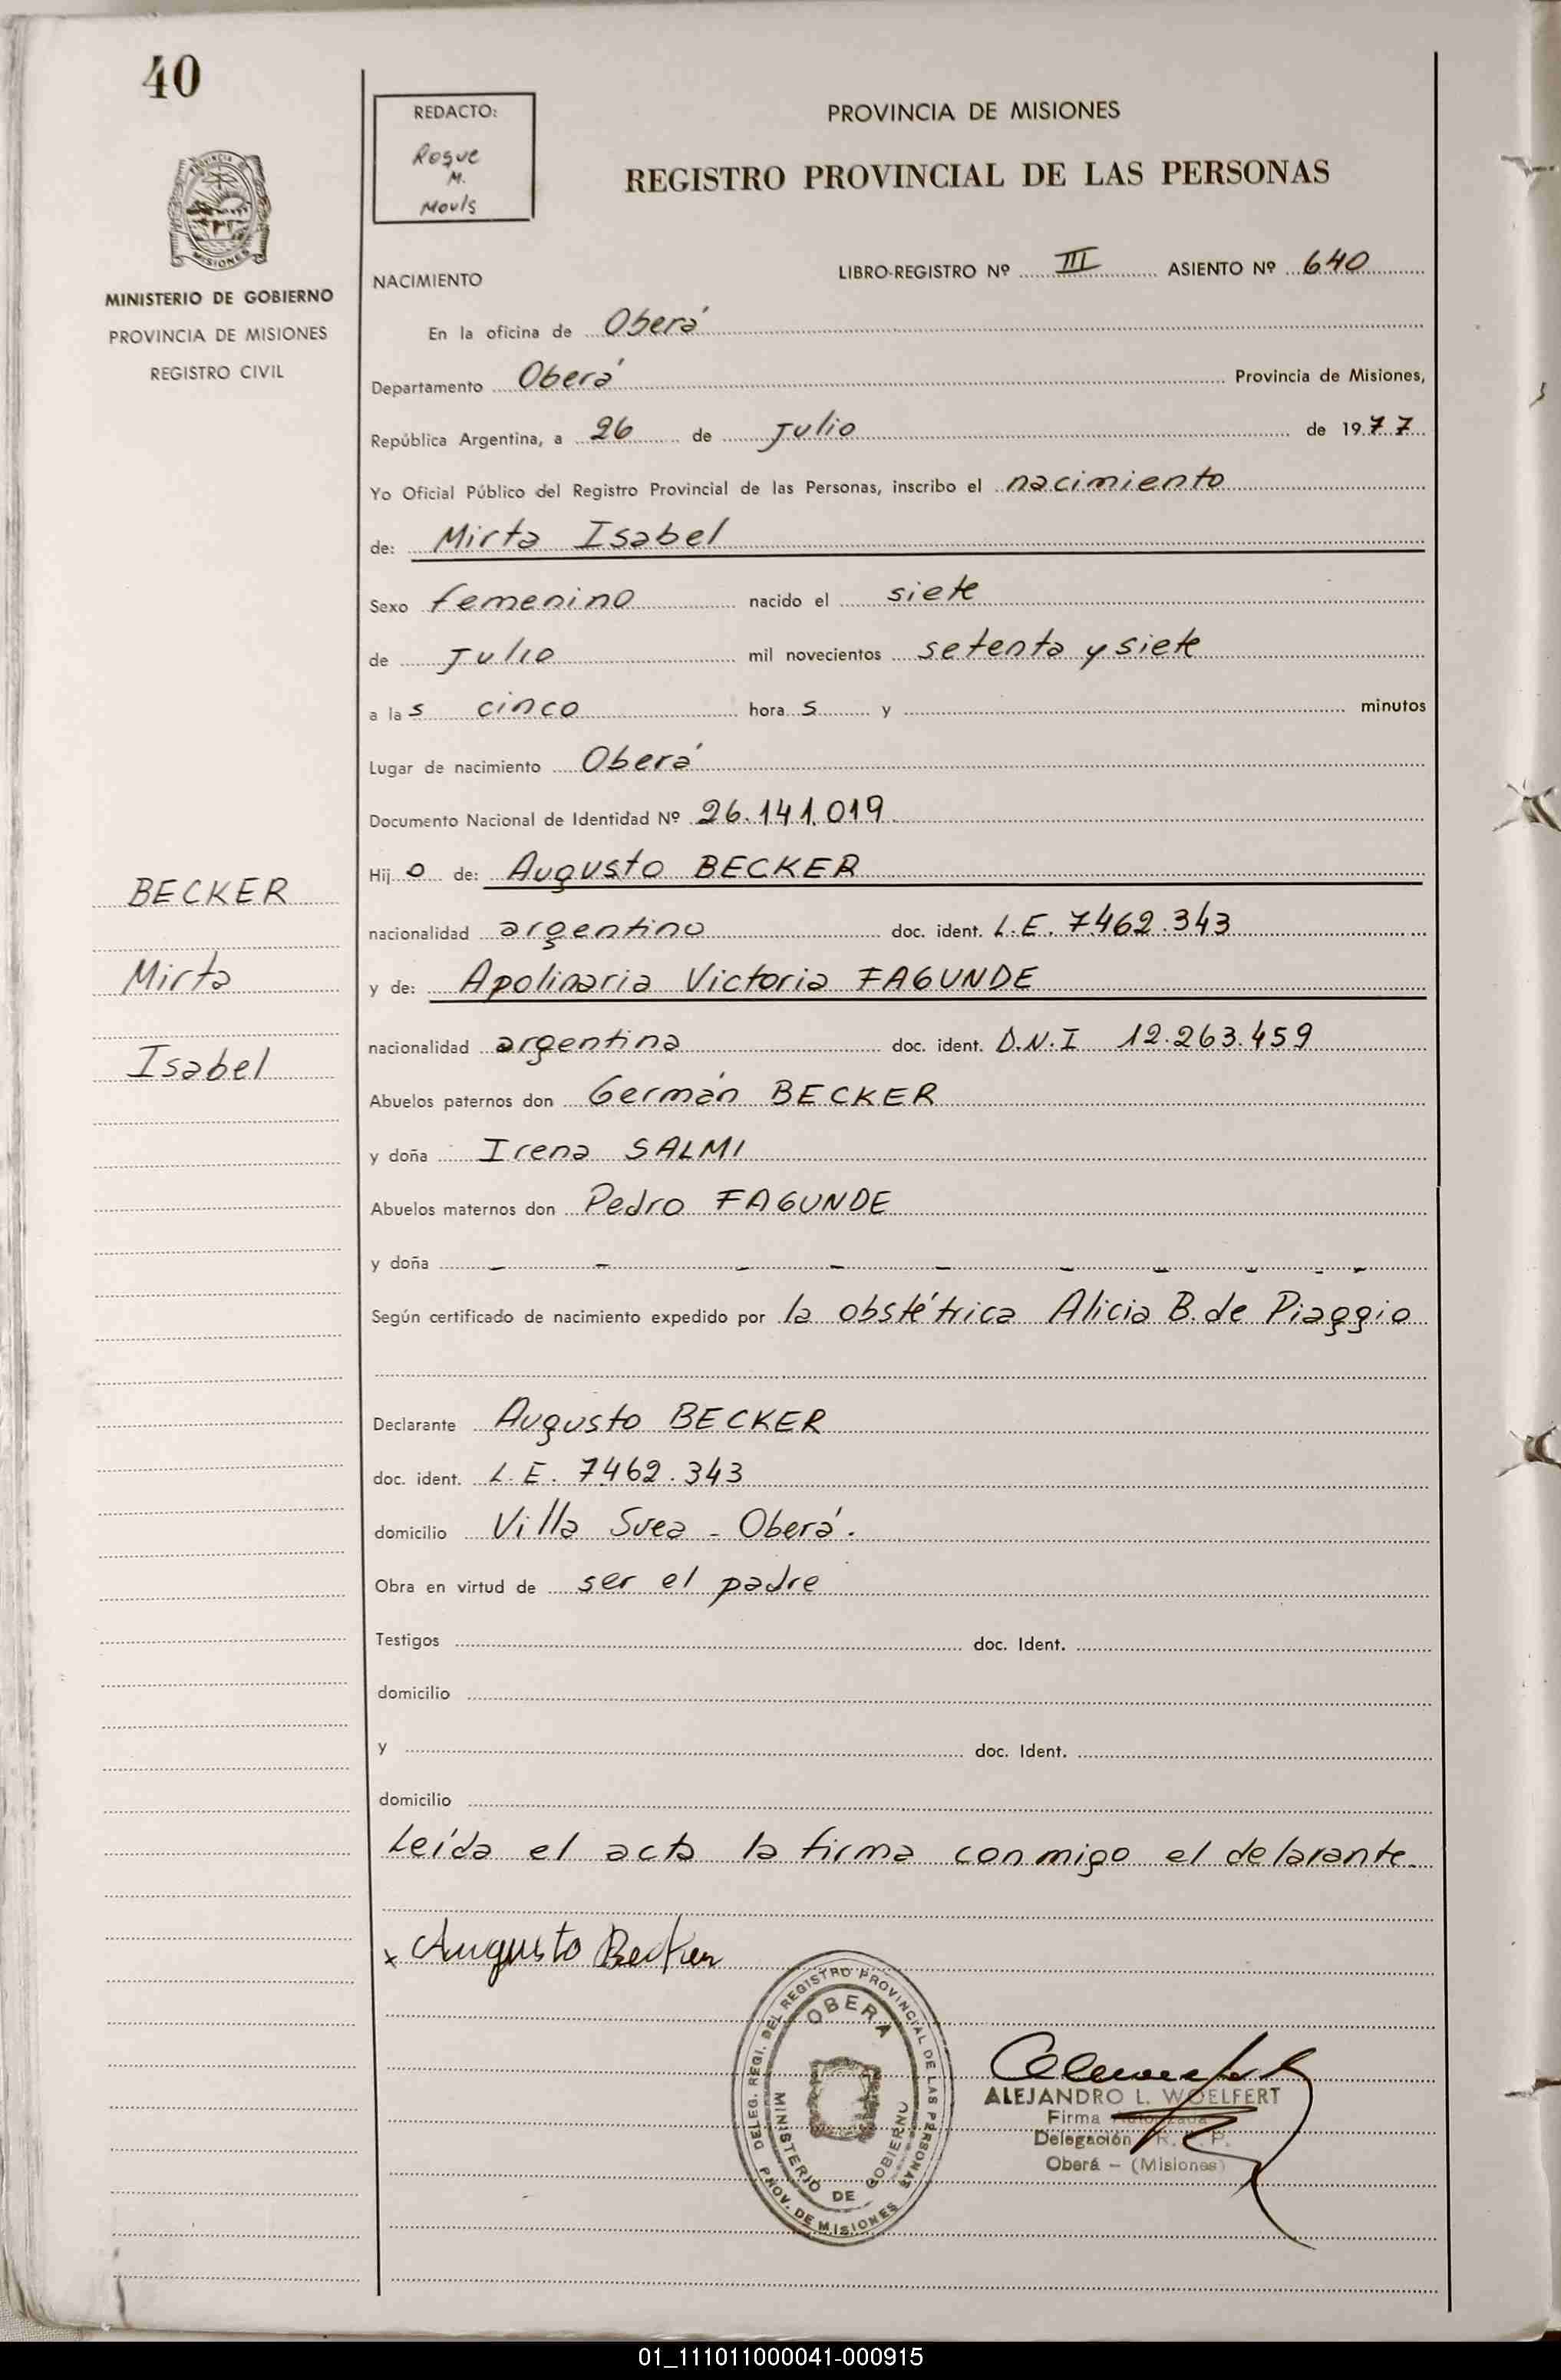 40
REDACTO:
Roque
M.
Mouls
PROVINCIA DE MISIONES
REGISTRO PROVINCIAL DE LAS PERSONAS
MINISTERIO DE GOBIERNO
PROVINCIA DE MISIONES
REGISTRO CIVIL
NACIMIENTO
LIBRO-REGISTRO Nº III ASIENTO Nº 640
En la oficina de Oberá
Departamento Oberá Provincia de Misiones,
República Argentina, a 26 de Julio de 1977
Yo Oficial Público del Registro Provincial de las Personas, inscribo el nacimiento
de: Mirta Isabel
Sexo femenino nacido el siete
de Julio mil novecientos setenta y siete
a las cinco horas y minutos
Lugar de nacimiento Oberá
Documento Nacional de Identidad Nº 26.141.019
Hijo de: Augusto BECKER
BECKER
nacionalidad argentino doc. ident. L.E. 7462.343
Mirta
y de: Apolinaria Victoria FAGUNDE
nacionalidad argentina doc. ident. D.N.I 12.263.459
Isabel
Abuelos paternos don Germán BECKER
y doña Irena SALMI
Abuelos maternos don Pedro FAGUNDE
y doña - - - - - - - - - -
Según certificado de nacimiento expedido por la obstétrica Alicia B. de Piaggio
Declarante Augusto BECKER
doc. ident. L.E. 7462.343
domicilio Villa Svea - Oberá.
Obra en virtud de ser el padre
Testigos doc. Ident.
domicilio
y doc. Ident.
domicilio
Leída el acta la firma conmigo el delarante.
x Augusto Becker
DELEG. REGI. DEL REGISTRO PROVINCIAL DE LAS PERSONAS
PROV. DE MISIONES
OBERA
MINISTERIO DE GOBIERNO
ALEJANDRO L. WOELFERT
Firma Autorizada
Delegación R. P.
Oberá - (Misiones)
01_111011000041-000915